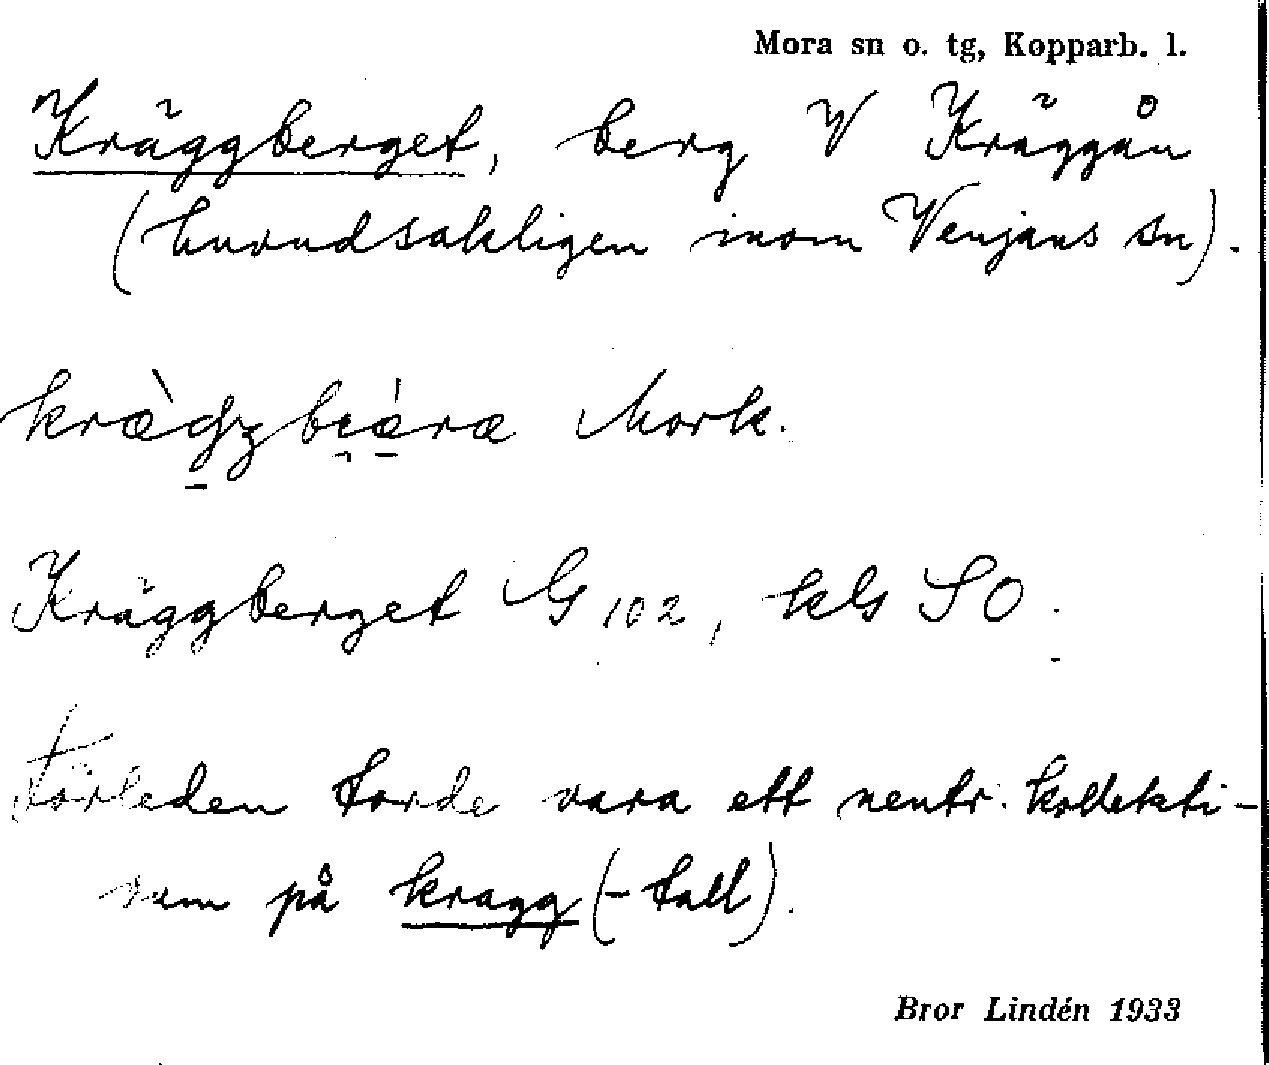 Mora sn o. tg, Kopparb. l.
Kräggberget, berg V Kräggån
(huvudsakligen inom Venjans sn).
Mork.
Kräggberget G 102, hls SO.
Förleden torde vara ett neutr. kollekti-
vum på kragg (-tall).
Bror Lindén 1933